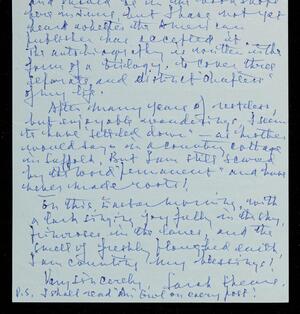 and should be in the bookshops
here in June, but I have not yet
heard whether the American
publisher has accepted it.
The autobiography is written in the
form of a trilogy, to cover three
separate and distinct "chapters"
of my life.
After many years of restless,
but enjoyable wanderings, I seem
to have "settled down" — as mother
would say — in a country cottage
in Suffolk. But I am still scared
by the word "permanent" and have
never made roots!
On this Easter morning, with
a lark singing joyfully in the sky,
primroses in the lanes, and the
smell of freshly ploughed earth,
I am counting my blessings!
Very sincerely,
Sarah
P.S. I shall read "An Owl on every post"!